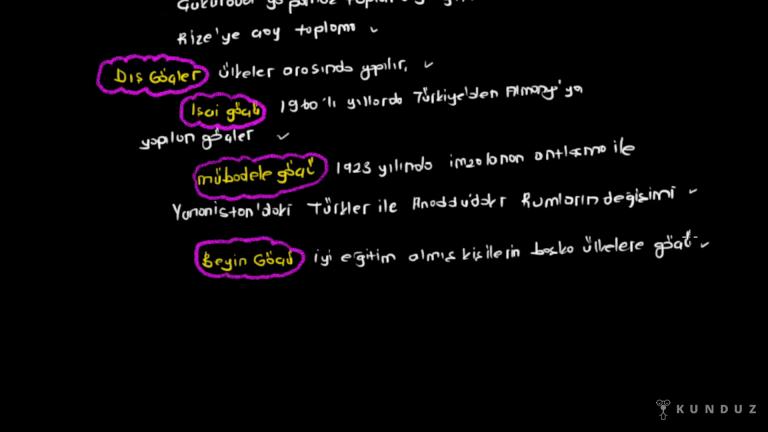 Rize'ye çay toplama
Dış Göçler ülkeler arasında yapılır.
İşçi göçü 1960'lı yıllarda Türkiye'den Almanya'ya
yapılan göçler
mübadele göçü 1923 yılında imzalanan antlaşma ile
Yunanistan'daki Türkler ile Anadolu'daki Rumların değişimi
Beyin Göçü iyi eğitim almış kişilerin başka ülkelere göçü
KUNDUZ